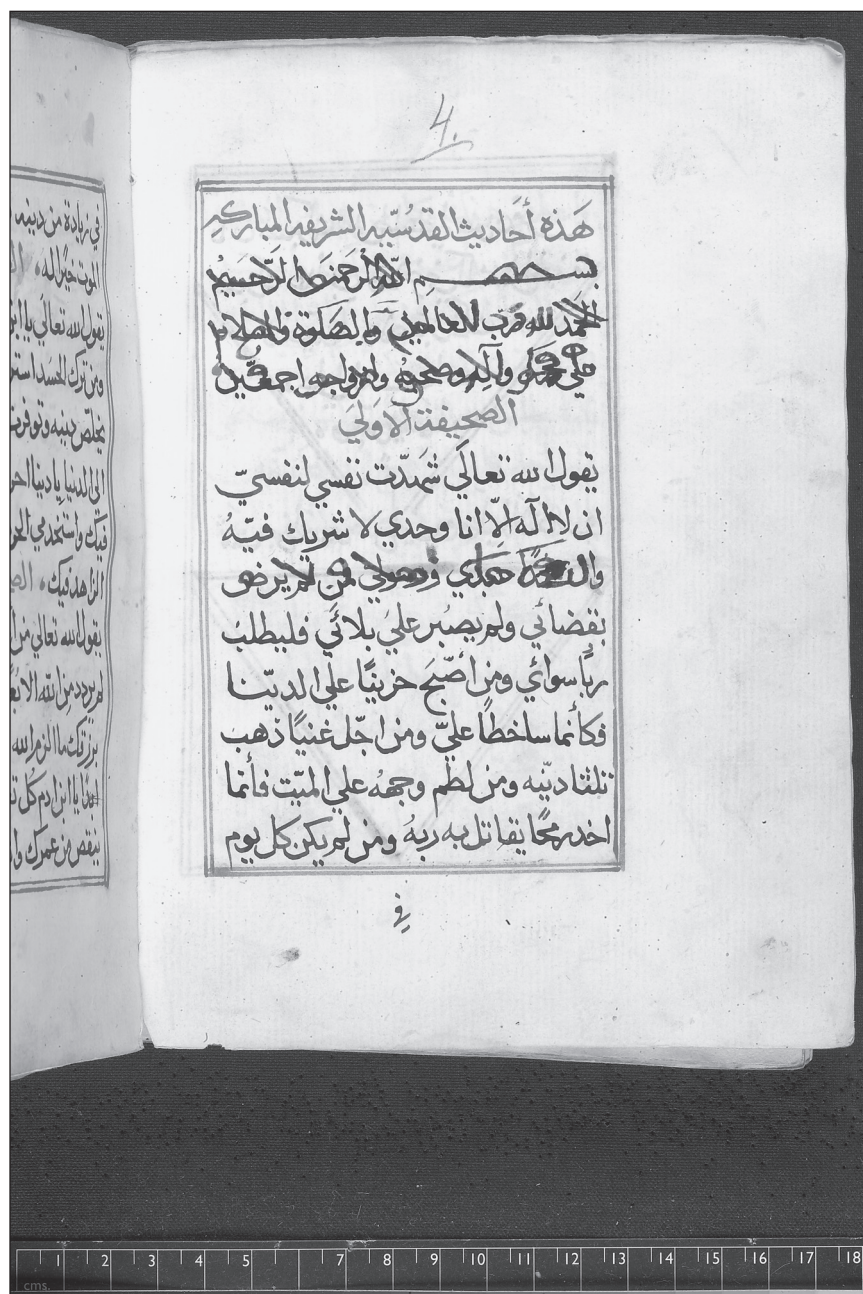 4.
هَذه أَحَاديث القدسُيّيه الشريفه المباركه
بســـــم الله الرحمن الرّحيم
الحمد لله رب العالمين والصلوة والسلام
علي محمد وآله وصحبه وازواجه اجمعين
الصحيفة الاولي
يقول الله تعالي شَهدّت نفسي لنفسيّ
ان لا اله الّا انا وحدي لا شريك فيّه
عبدي ورسولي من لم يرض
بقضائي ولم يصبُر عليَ بلائَي فليطلب
رباً سوائي ومن أصّبَح حزينًا علي الديّنا
فكأنما ساخطاً عليّ ومن اجّل غنياً ذهب
تلثا ديّنه ومن لطم وجههُ علي الميّت فأنما
اخد رمحًا يقاتل به ربهُ ومن لم يكن كل يوم
في
في زيادة من دينه
الموت خيرًا له
يقول الله تعالي يا ابن
ومن ترك الحسد استر
يخلص دينه وتوفرت
الي الدنيا يا دنيا اخر
فيك واستخدمي
الزاهد فيك
يقول الله تعالي من
لم يردد من الله الا بعد
برزقك ما الزم الله
ابدًا يا ابن ادم كل
ينقص من عمرك وا
cms.
1 2 3 4 5 7 8 9 10 11 12 13 14 15 16 17 18